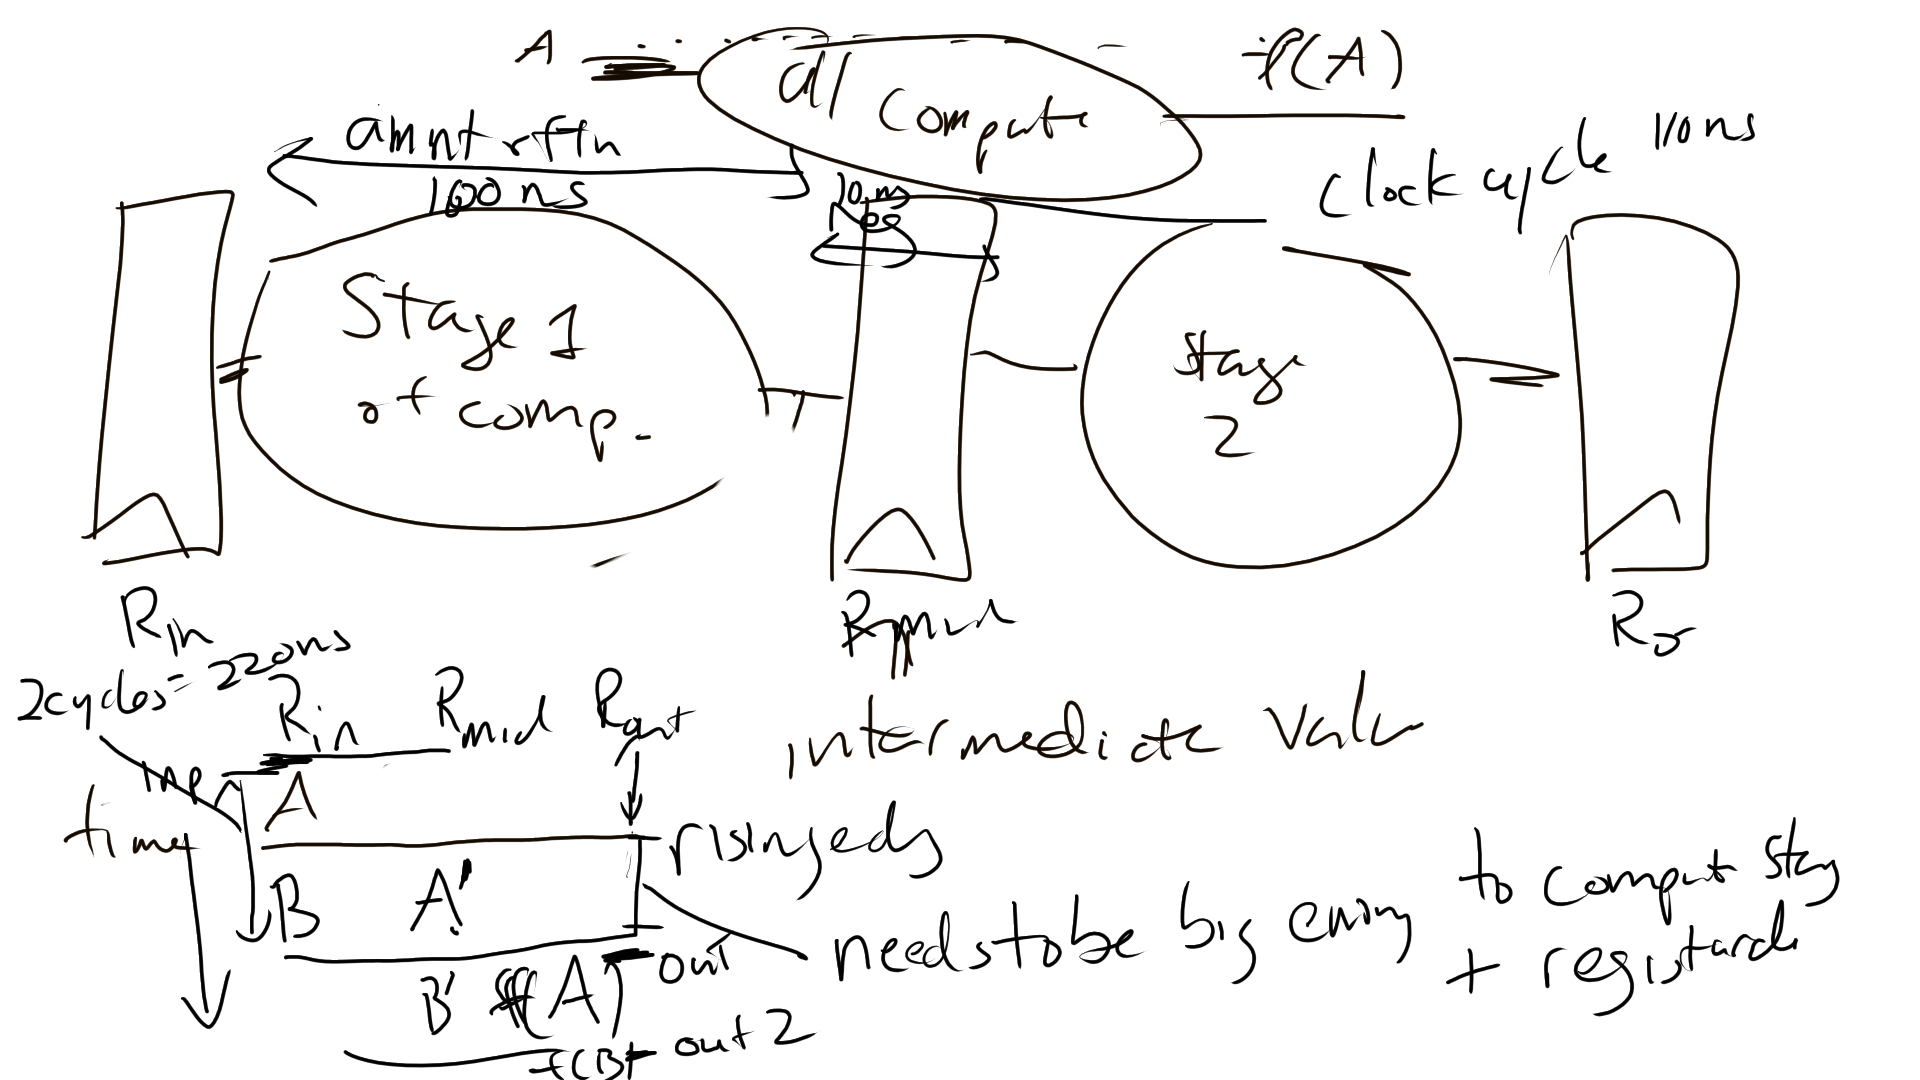 A
all
compute
f(A)
amnt of tm
100 ns
10 ns
clock cycle 110 ns
Stage 1
of comp.
Stage
2
Rin
2 cycles = 220ns
Rin Rmid Rout
intermediate value
inp
time
A
rising edg
B A'
needs to be big enoug to comput stag
+ regist
out
B' f(A)
f(B) out 2